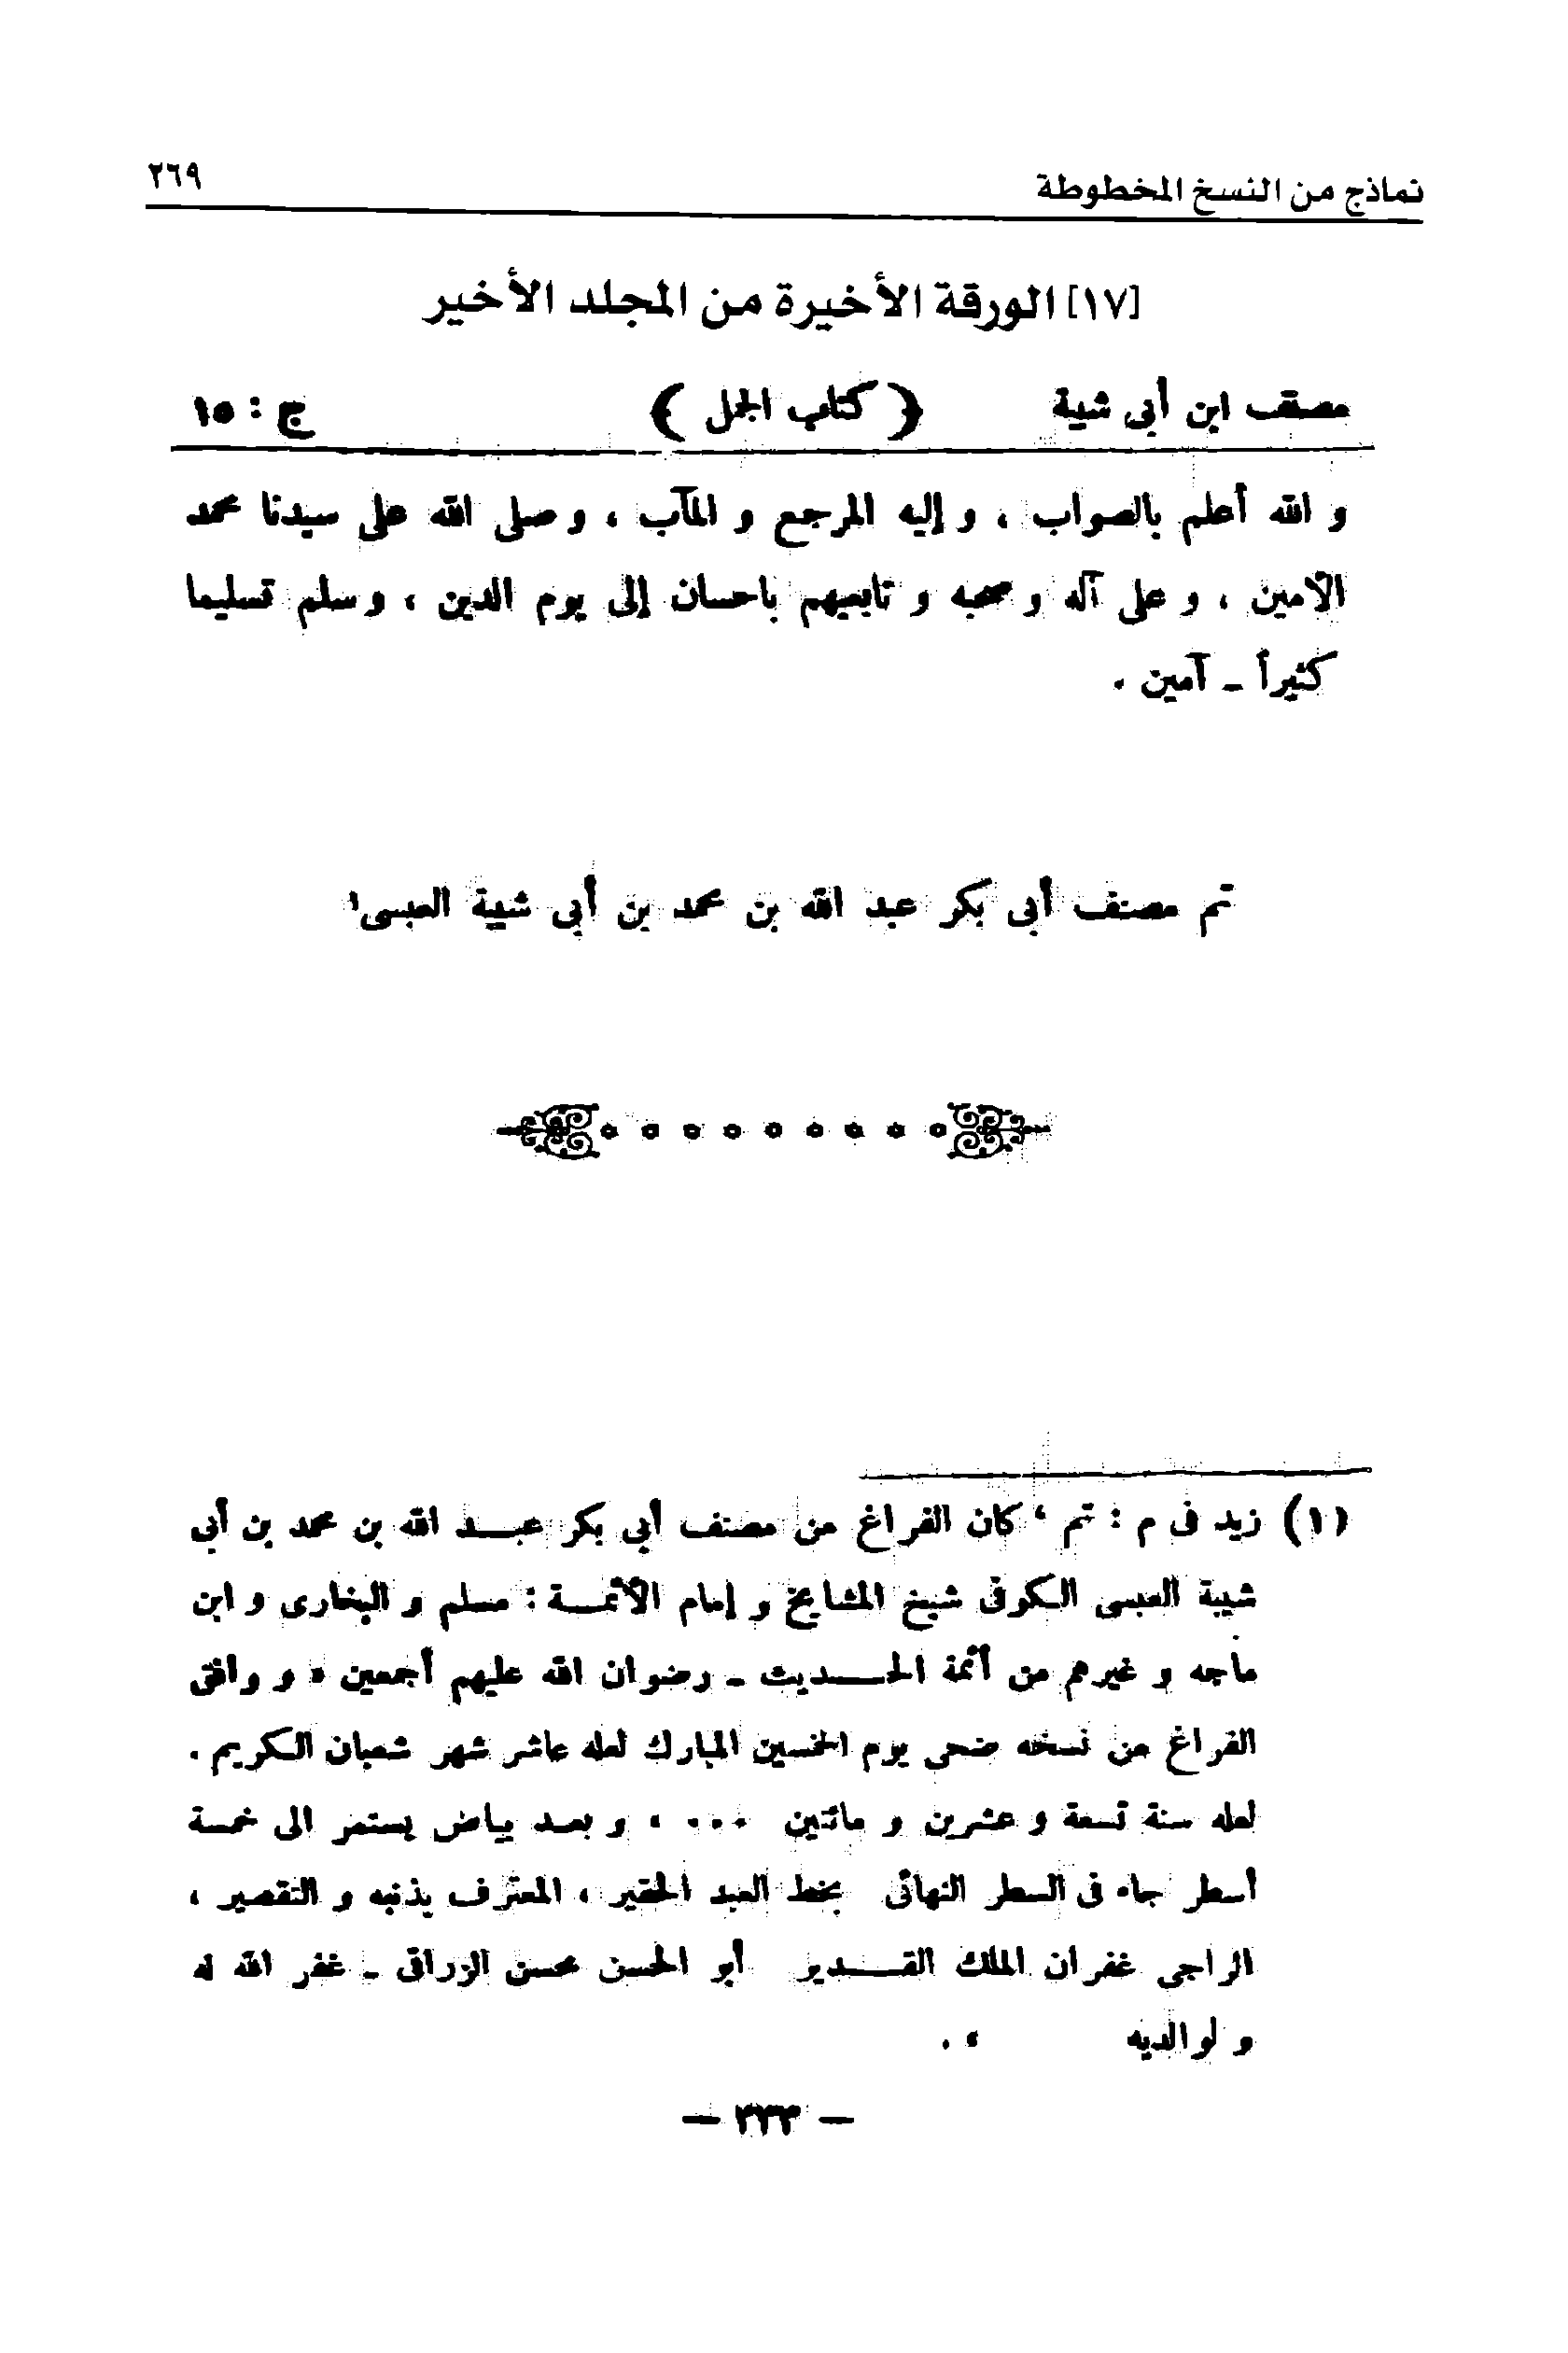 نماذج من النسخ المخطوطة ٢٦٩
[١٧] الورقة الأخيرة من المجلد الأخير
مصنف ابن أبى شيبة ( كتاب الجمل ) ج : ١٥
و الله أعلم بالصواب ، و إليه المرجع و المآب ، و صلى الله على سيدنا محمد
الأمين ، و على آله و صحبه و تابعيهم باحسان إلى يوم الدين ، و سلم تسليما
كثيراً ـ آمين .
تم مصنف أبى بكر عبد الله بن محمد بن أبى شيبة العبسى١
(١) زيد فى م : تم ‘ كان الفراغ من مصنف أبى بكر عبـــد الله بن محمد بن أبى
شيبة العبسى الكوفى شيخ المشايخ و إمام الأئمـــة : مسلم و البخارى و ابن
ماجه و غيرهم من أئمة الحـــديث ـ رضوان الله عليهم أجمعين ، و وافق
الفراغ من نسخه ضحى يوم الخميس المبارك لعله عاشر شهر شعبان الكريم .
لعله سنة تسعة و عشرين و مائتين ... ، و بعد بياض يستمر الى خمسة
أسطر جاء فى السطر النهائى بخط العبد الحقير ، المعترف بذنبه و التقصير ،
الراجى غفران الملك القـــدير أبو الحسن محسن الزراقى ـ غفر الله له
و لوالديه ، .
— ٣٣٣ —